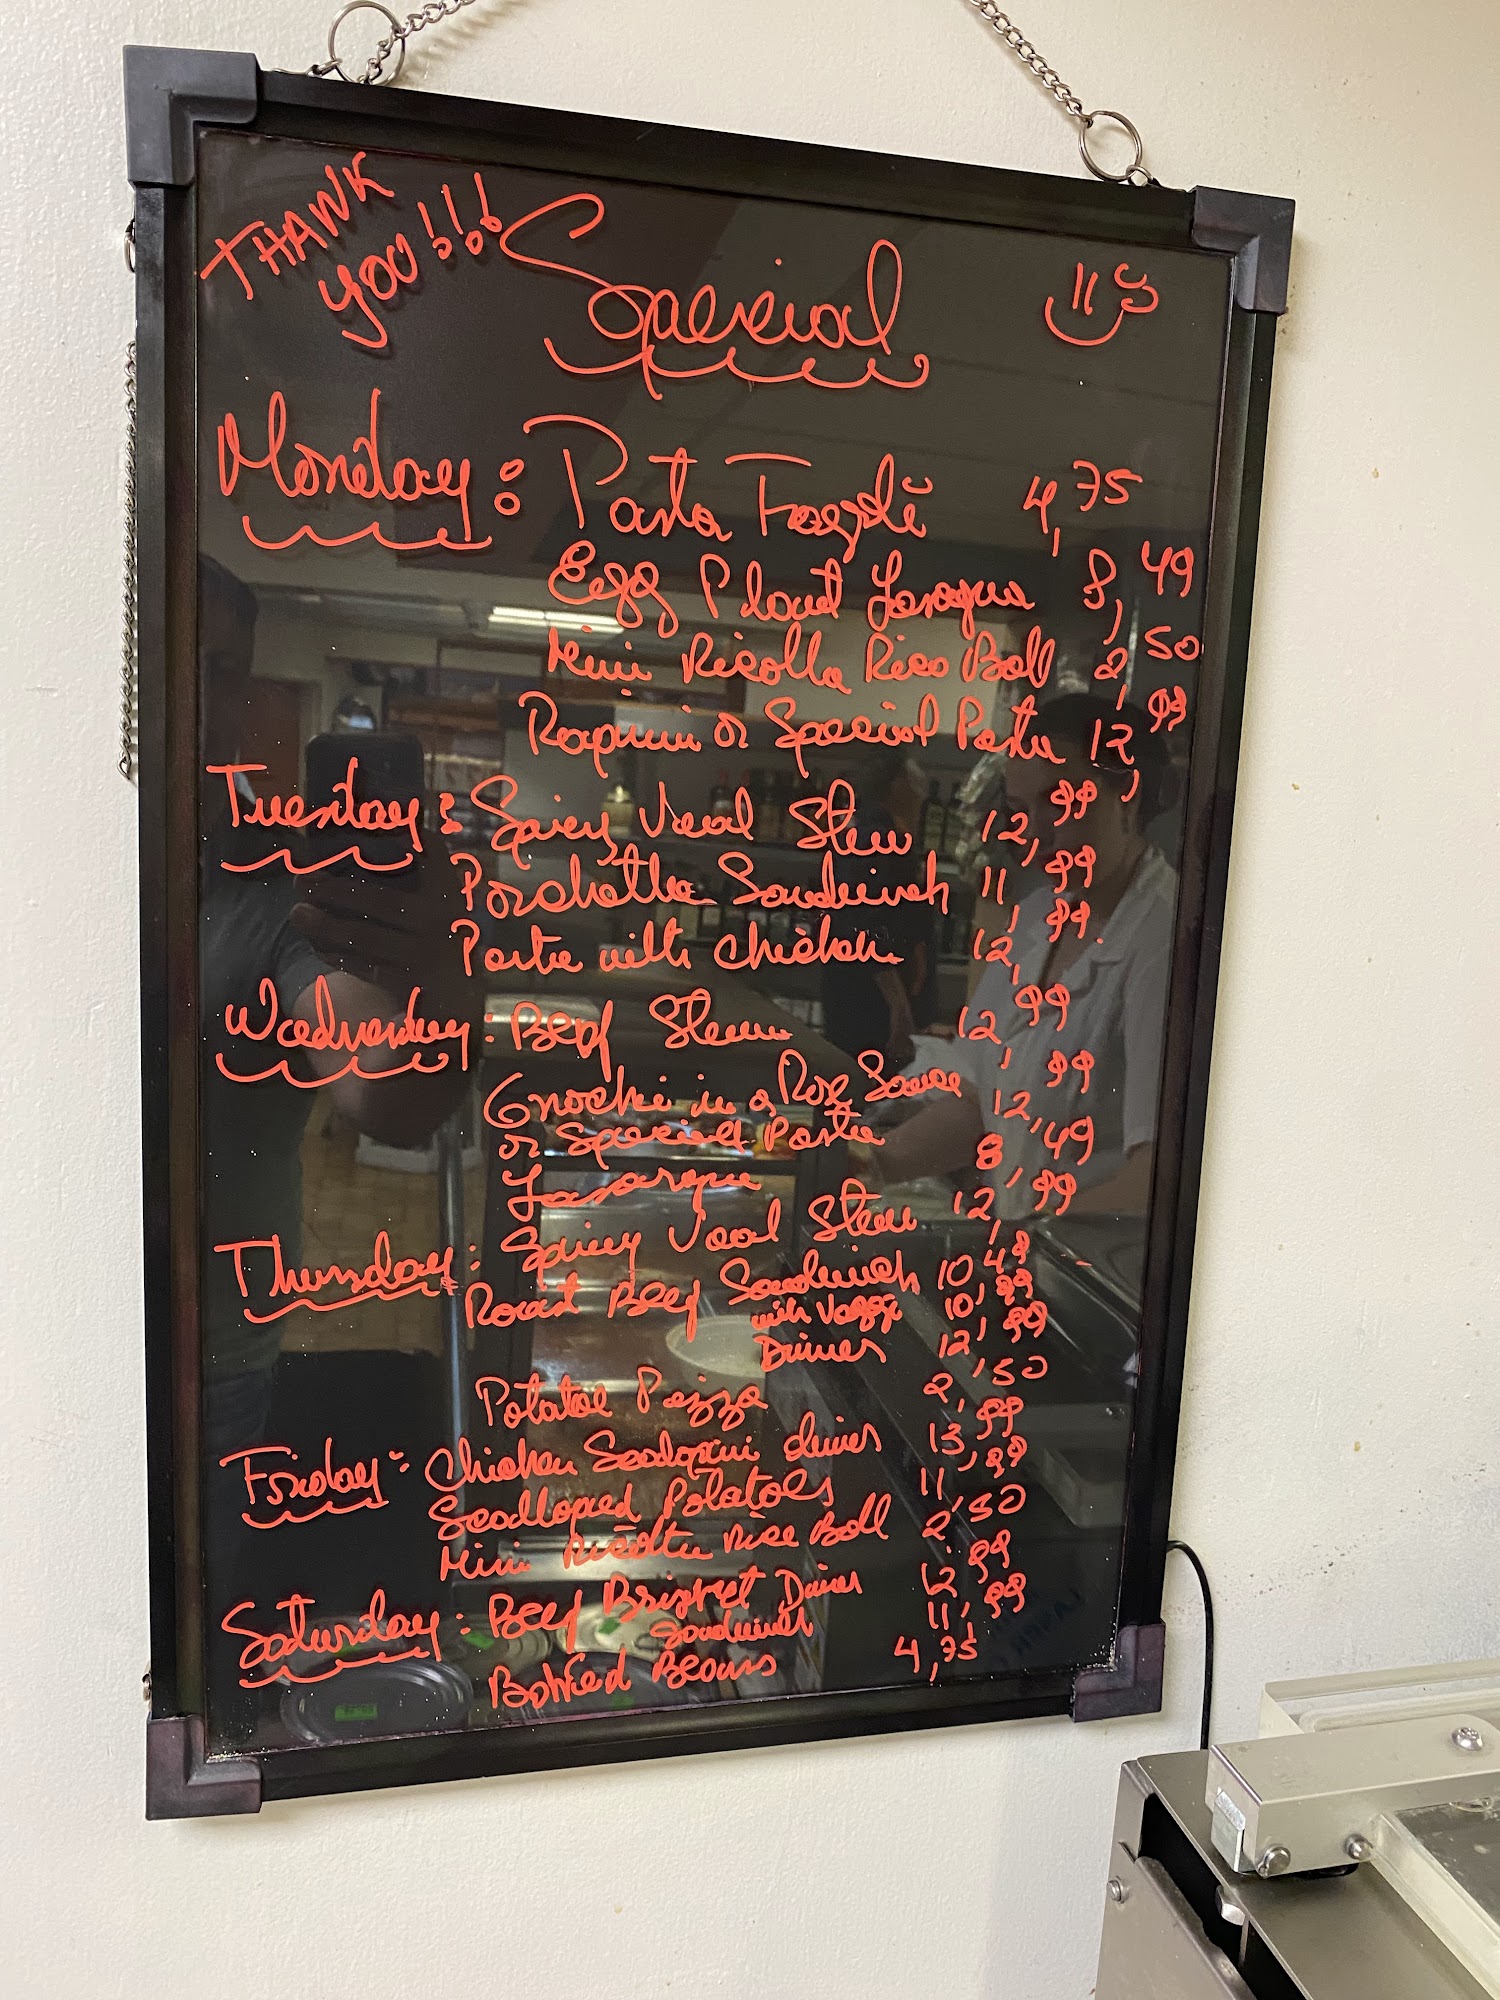 THANK
YOU!!!
Special
Monday: Pasta Fagoli 4,75
Egg Plant Lasagna 8,49
Mini Ricotta Rice Boll 2,50
Rapini or Special Pasta 12,99
Tuesday: Spicy Veal Stew 12,99
Porchetta Sandwich 11,99
Pasta with chicken 12,99
Wednesday: Beef Stew 12,99
Gnocchi in a Rose Sauce 12,99
or Special Pasta
Lasagna 8,49
Thursday: Spicy Veal Stew 12,99
Roast Beef Sandwich 10,49
with Veggi 10,99
Dinner 12,99
Potatoe Pizza 2,50
Friday: Chicken dinner 13,99
Potatoes 11,99
Mini Ricotta Rice Boll 2,50
Saturday: Beef Brisket Dinner 12,99
Sandwich 11,99
Beans 4,75